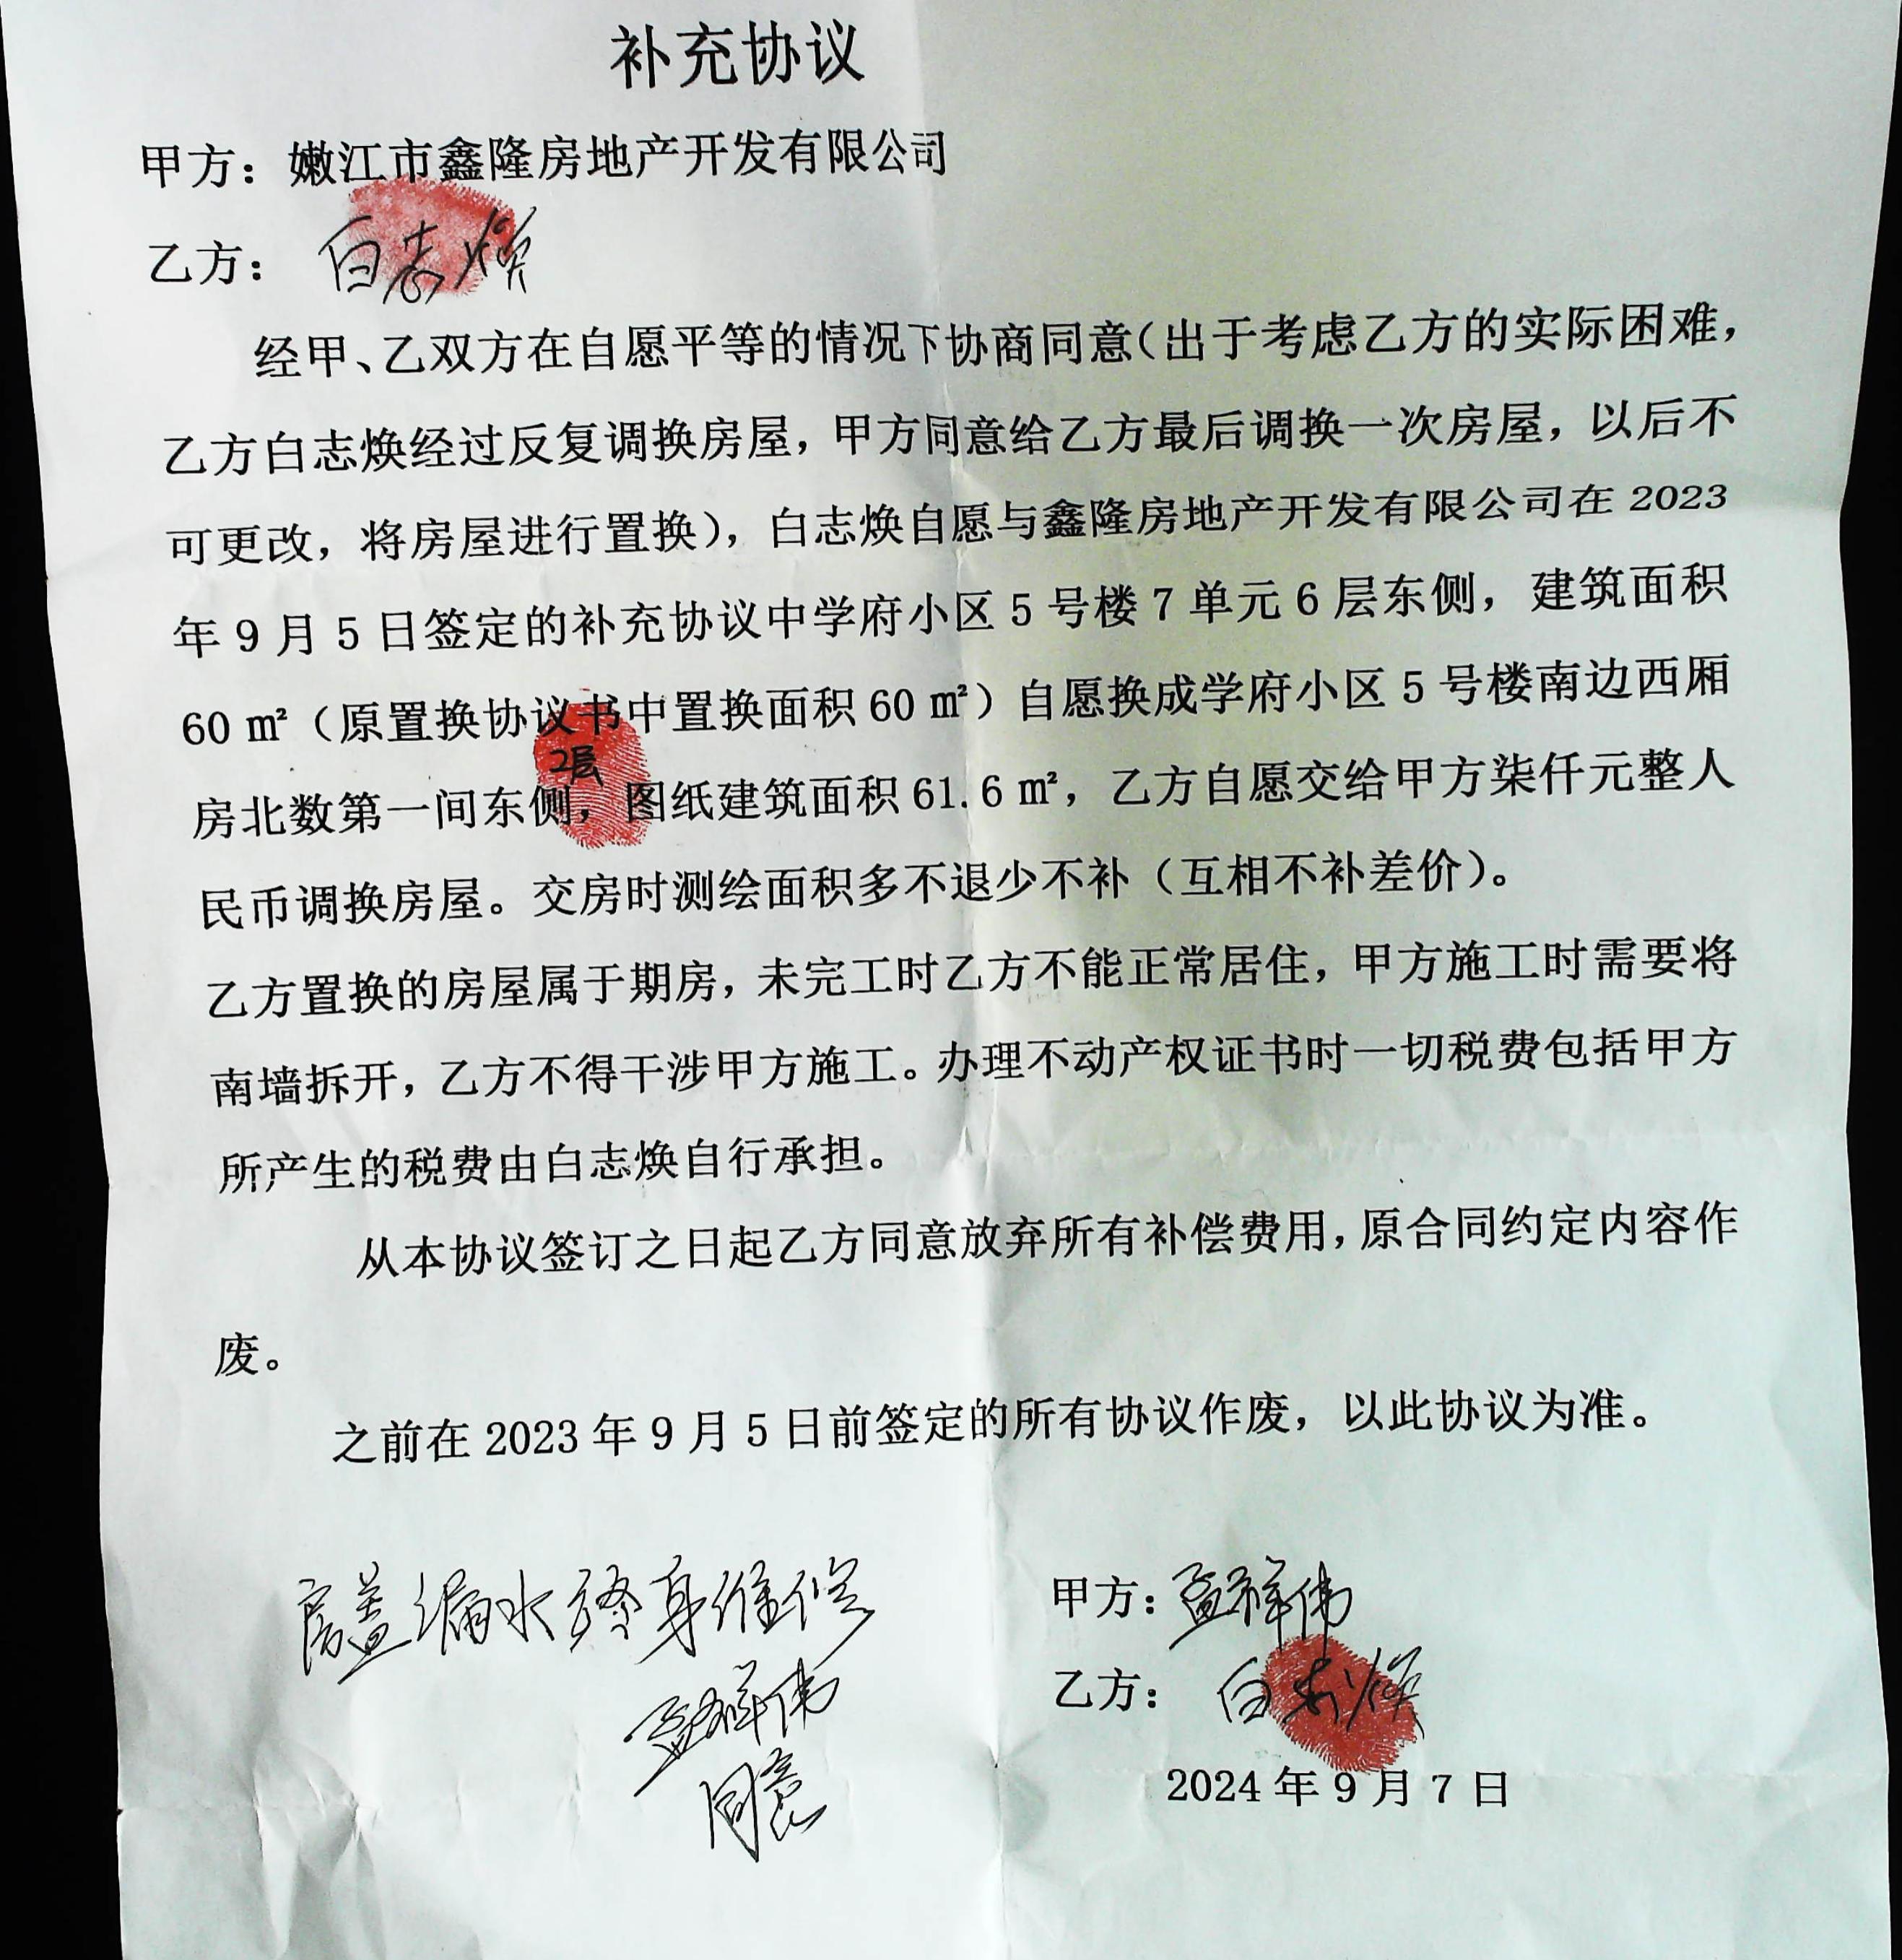 补充协议
甲方：嫩江市鑫隆房地产开发有限公司
乙方：白志焕
经甲、乙双方在自愿平等的情况下协商同意（出于考虑乙方的实际困难，
乙方白志焕经过反复调换房屋，甲方同意给乙方最后调换一次房屋，以后不
可更改，将房屋进行置换），白志焕自愿与鑫隆房地产开发有限公司在 2023
年 9 月 5 日签定的补充协议中学府小区 5 号楼 7 单元 6 层东侧，建筑面积
60 ㎡（原置换协议书中置换面积 60 ㎡）自愿换成学府小区 5 号楼南边西厢
2层
房北数第一间东侧，图纸建筑面积 61.6 ㎡，乙方自愿交给甲方柒仟元整人
民币调换房屋。交房时测绘面积多不退少不补（互相不补差价）。
乙方置换的房屋属于期房，未完工时乙方不能正常居住，甲方施工时需要将
南墙拆开，乙方不得干涉甲方施工。办理不动产权证书时一切税费包括甲方
所产生的税费由白志焕自行承担。
从本协议签订之日起乙方同意放弃所有补偿费用，原合同约定内容作
废。
之前在 2023 年 9 月 5 日前签定的所有协议作废，以此协议为准。
房盖漏水终身维修
孟祥伟
同意
甲方：孟祥伟
乙方：白志焕
2024 年 9 月 7 日